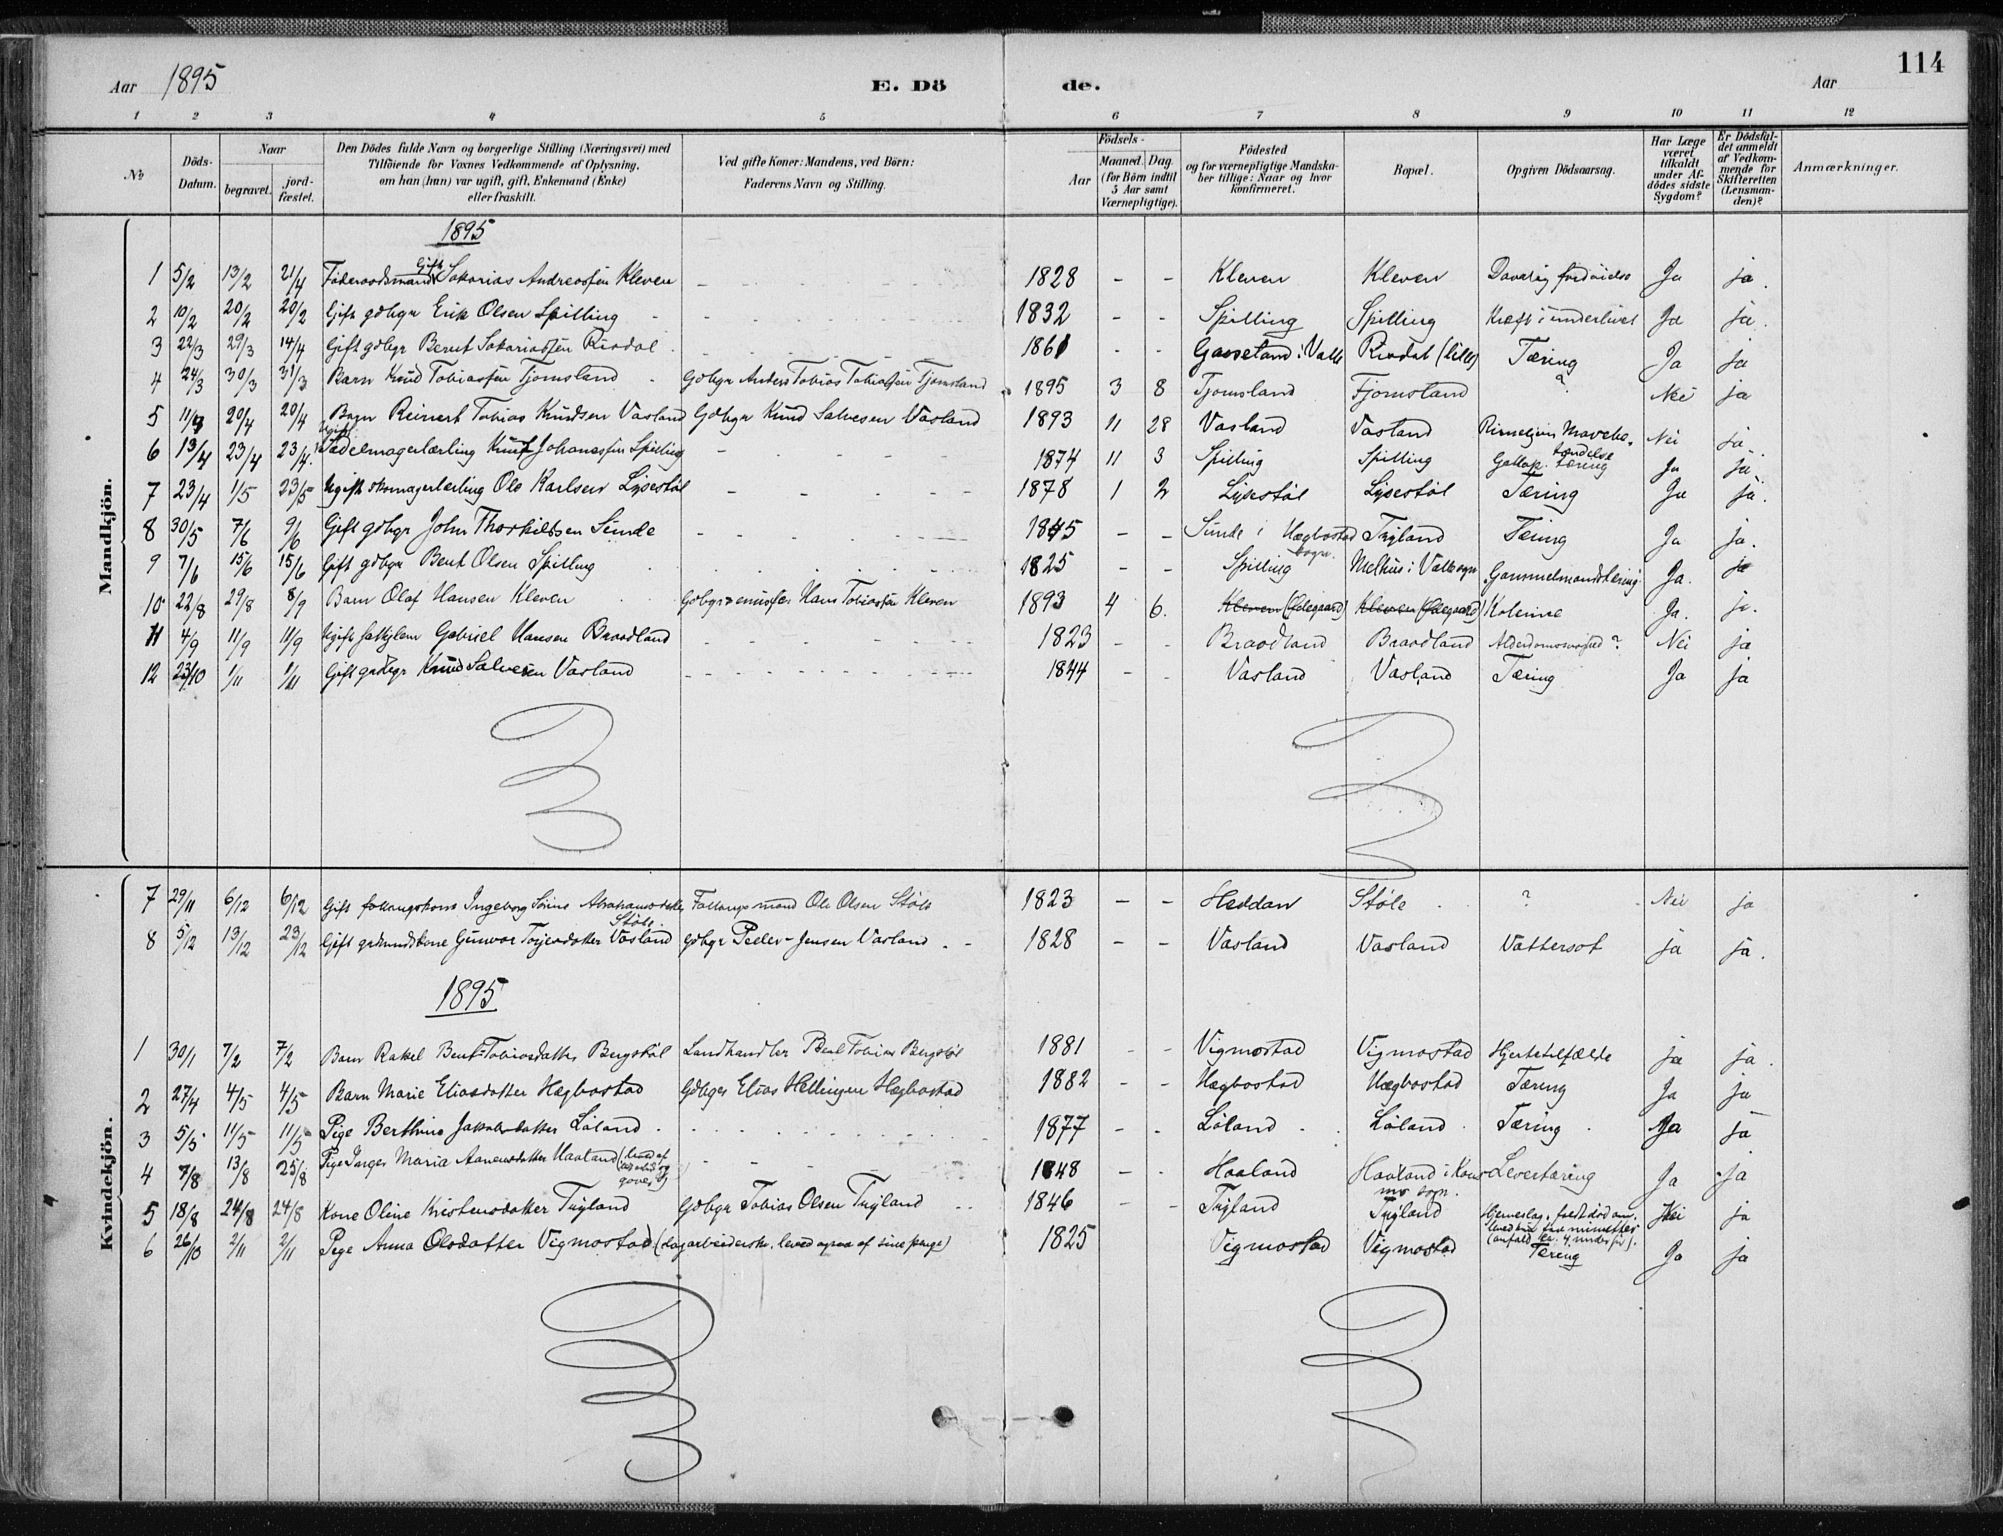 114
Aar 1895 E. Dö de. Aar
1 2 3 4 5 6 7 8 9 10 11 12
No
Döds-Datum.
Naar
begravet.
jord-fæstet.
Den Dödes fulde Navn og borgerlige Stilling (Næringsvei) med
Tilföiende for Voxnes Vedkommende af Oplysning,
om han (hun) var ugift, gift, Enkemand (Enke)
eller fraskilt.
Ved gifte Koner: Mandens, ved Börn:
Faderens Navn og Stilling.
Födsels-
Aar
Maaned. Dag.
(for Börn indtil
5 Aar samt
Værnepligtige).
Födested
og for værnepligtige Mandska-
ber tillige: Naar og hvor
konfirmeret.
Bopæl.
Opgiven Dödsaarsag.
Har Læge
været
tilkaldt
under Af-
dödes sidste
Sygdom?
Er Dödsfal-
det anmeldt
af Vedkom-
mende for
Skifteretten
(Lensman-
den)?
Anmærkninger.
Mandkjön.
1895
1 5/2 13/2 21/4 Föderaadsmand Gift Sakarias Andreassen Kleven 1828 - - Kleven Kleven Ja ja.
2 10/2 20/2 20/2 Gift gdbgr Erik Olsen Spilling 1832 - - Spilling Spilling Kræft i underlivet Ja ja.
3 22/3 29/3 14/4 Gift gdbgr Bernt Sakariassen Rivdal 1861 - - i Valle Rivdal (lille) Tæring Ja ja
4 24/3 30/3 31/3 Barn Knud Tobiassen Tjomsland Gdbgr Anders Tobias Tobiassen Tjomsland 1895 3 8 Tjomsland Tjomsland ? Nei ja
5 20/4 20/4 Barn Reinert Tobias Knudsen Vasland Gdbgr Knud Salvesen Vasland 1893 11 28 Vasland Vasland Nei ja.
6 13/4 23/4 23/4 Ugift Sadelmagerlærling Knut Johanessen Spilling 1874 11 3 Spilling Spilling Gallop. Tæring Ja ja
7 23/4 1/5 23/5 Ugift skomagerlærling Ole Karlsen Lysestøl 1878 1 2 Lysestøl Lysestøl Tæring Ja ja.
8 30/5 7/6 9/6 Gift gdbgr John Thorkildsen Sunde 1845 - - Sunde i Hægbostad sogn. Tryland Tæring Ja ja.
9 7/6 15/6 15/6 Gift gdbgr Bent Olsen Spilling 1825 - - Spilling Melhus i Valle sogn Gammelmandstæring Ja. ja
10 22/8 29/8 8/9 Barn Olaf Hansen Kleven Hans Tobiassen Kleven 1893 4 6. Kleven (Ødegaard) Kleven (Ødegaard) Kolerine Ja. ja.
11 4/9 11/9 11/9 Ugift fattiglem Gabriel Hansen Braadland 1823 - - Braadland Braadland Alderdomssvaghed? Nei ja
12 23/10 1/11 1/11 Gift gdbgr Knud Salvesen Vasland 1844 - - Vasland Vasland Tæring Ja ja
Kvindekjön.
7 29/11 6/12 6/12 Gift Ingeborg Abrahamsdatter Støle. Ole Olsen Støle 1823 - - Heddan Støle ? Nei ja
8 5/12 13/12 23/12 Gift Gunvor Torjersdatter Vasland Gdbgr Peder Jensen Vasland 1828 - - Vasland Vasland Vattersot ja ja.
1895
1 30/1 7/2 7/2 Barn Rakel Bent-Tobiasdatter Bergstøl Landhandler Bent Tobias Bergstøl 1881 - - Vigmostad Vigmostad Hjertetilfælde ja ja.
2 27/4 4/5 4/5 Barn Marie Eliasdatter Hægbostad Gdbgr Elias Hellingsen Hægbostad 1882 - - Hægbostad Hægbostad Tæring Ja ja
3 5/5 11/5 11/5 Pige Berthine Jakobsdatter Løland 1877 - - Løland Løland Tæring Ja ja
4 7/8 13/8 25/8 Pige Inger Maria Aanensdatter Haaland (leved af 1848 - - Haaland Haaland i sogn. Levertæring Ja ja
5 18/8 24/8 24/8 Kone Oline Kristensdatter Tryland Gdbgr Tobias Olsen Tryland 1846 - - Tryland Tryland Hjerneslag. Nei ja
6 26/10 2/11 2/11 Pige Anna Olsdatter Vigmostad (dagarbeiderske, leved ogsaa af sine penge) 1825 Vigmostad Vigmostad Tæring Ja ja